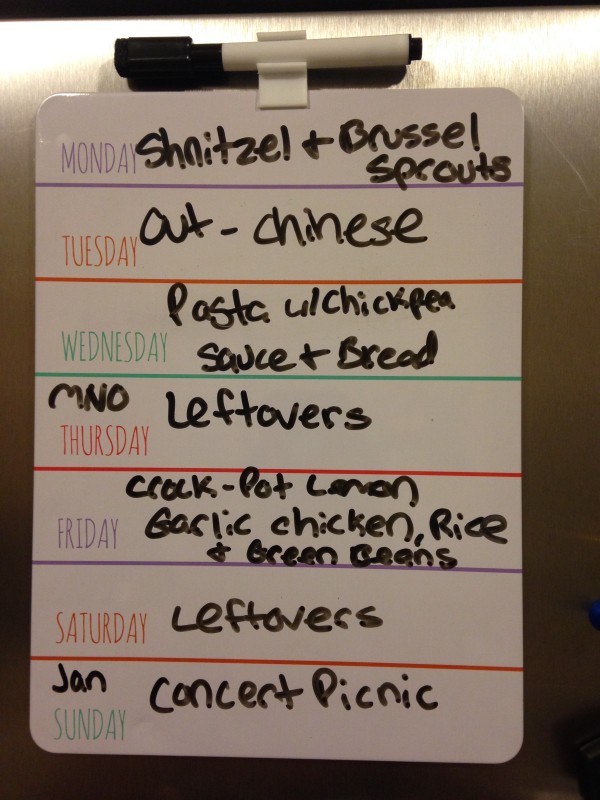 MONDAY Shnitzel + Brussel
Sprouts
TUESDAY Out - Chinese
Pasta w/Chickpea
WEDNESDAY Sauce + Bread
MNO Leftovers
THURSDAY
Crock-Pot Lemon,
FRIDAY Garlic chicken, Rice
+ Green Beans
SATURDAY Leftovers
Jan Concert Picnic
SUNDAY